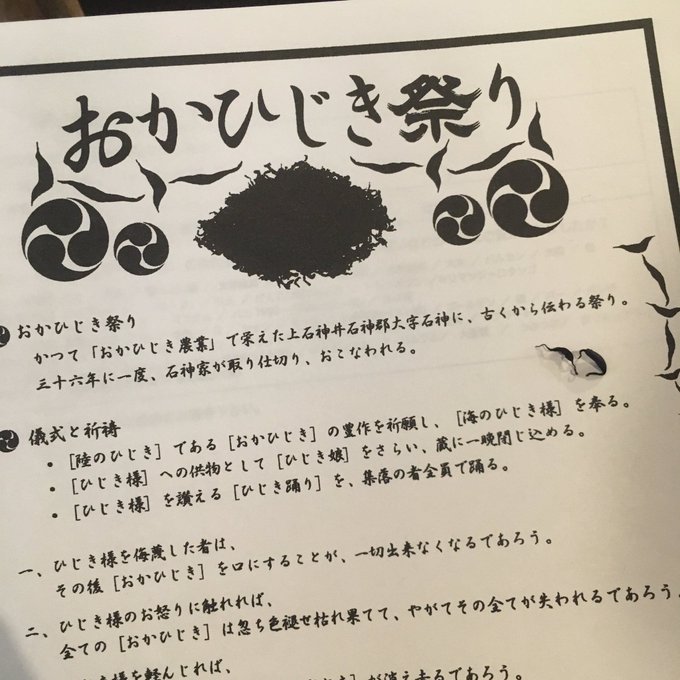 おかひじき祭り
おかひじき祭り
かつて「おかひじき農業」で栄えた上石神井石神郡大字石神に、古くから伝わる祭り。
三十六年に一度、石神家が取り仕切り、おこなわれる。
儀式と祈祷
・[陸のひじき]である[おかひじき]の豊作を祈願し、[海のひじき様]を奉る。
・[ひじき様]への供物として[ひじき娘]をさらい、蔵に一晩閉じ込める。
・[ひじき様]を讃える[ひじき踊り]を、集落の者全員で踊る。
一、ひじき様を侮蔑した者は、
その後[おかひじき]を口にすることが、一切出来なくなるであろう。
二、ひじき様のお怒りに触れれば、
全ての[おかひじき]は忽ち色褪せ枯れ果てて、やがてその全てが失われるであろう。
様を軽んじれば、
が消え去るであろう。